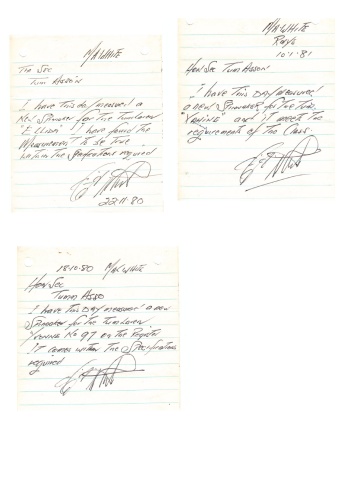 M A WHITE
The Sec
Tum Asson
I have this day measured a
New Spinnaker for the Tumlaren
I have found the
Measurements to be true
within the required
22.11.80
M A WHITE
10.1.81
Hon Sec Tum Asson
I have this day measured
a new Spinnaker for the Tum
"YVONNE" and it meets the
requirements of the Class.
18.10.80 M A WHITE
Hon Sec
Tumn Asso
I have this day measured a new
Spinnaker for the Tumlaren
Yvonne No 97 on the Register
It comes within the Specifications
required